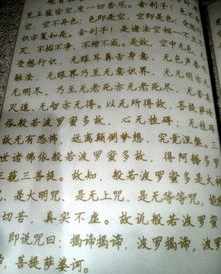 一切苦厄。舍利子！
空不异色，色即是空，空即是色
识亦复如是。舍利子！是诸法空相，不
灭，不垢不净，不增不减。是故，空中无色，
受想行识，无眼耳鼻舌身意，无色声香
触法，无眼界乃至无意识界，无无明
无明尽，乃至无老死亦无老死尽。无苦
灭道，无智亦无得。以无所得故，菩提
般若波罗蜜多故，心无罣碍，无
故无有恐怖，远离颠倒梦想，究竟涅槃。三
世诸佛依般若波罗蜜多故，得阿耨多
三藐三菩提。故知，般若波罗蜜多是大
是大明咒、是无上咒、是无等等咒，能
切苦，真实不虚。故说般若波罗
即说咒曰：揭谛揭谛，波罗揭谛，波
，菩提萨婆诃。